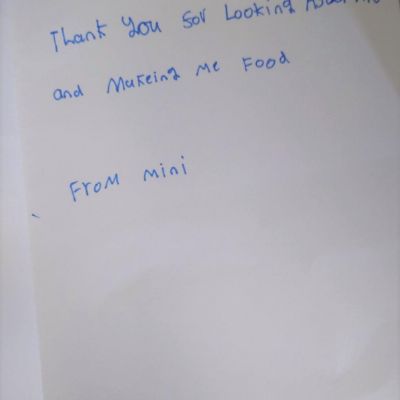 Thank you for Looking
and Makeing Me Food
From mini